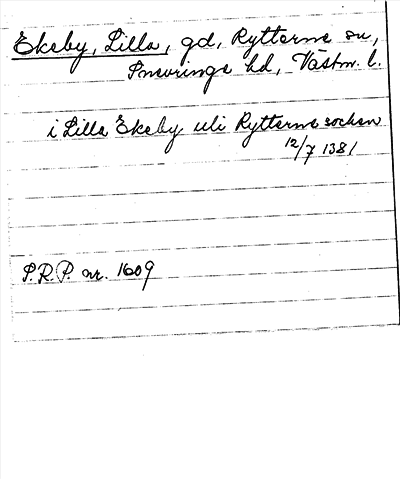 Ekeby, Lilla, gd, Rytterne sn,
Snevringe hd, Västm. l.
i Lilla Ekeby uti Rytterne sochen
12/7 1381
S.R.P. nr. 1609